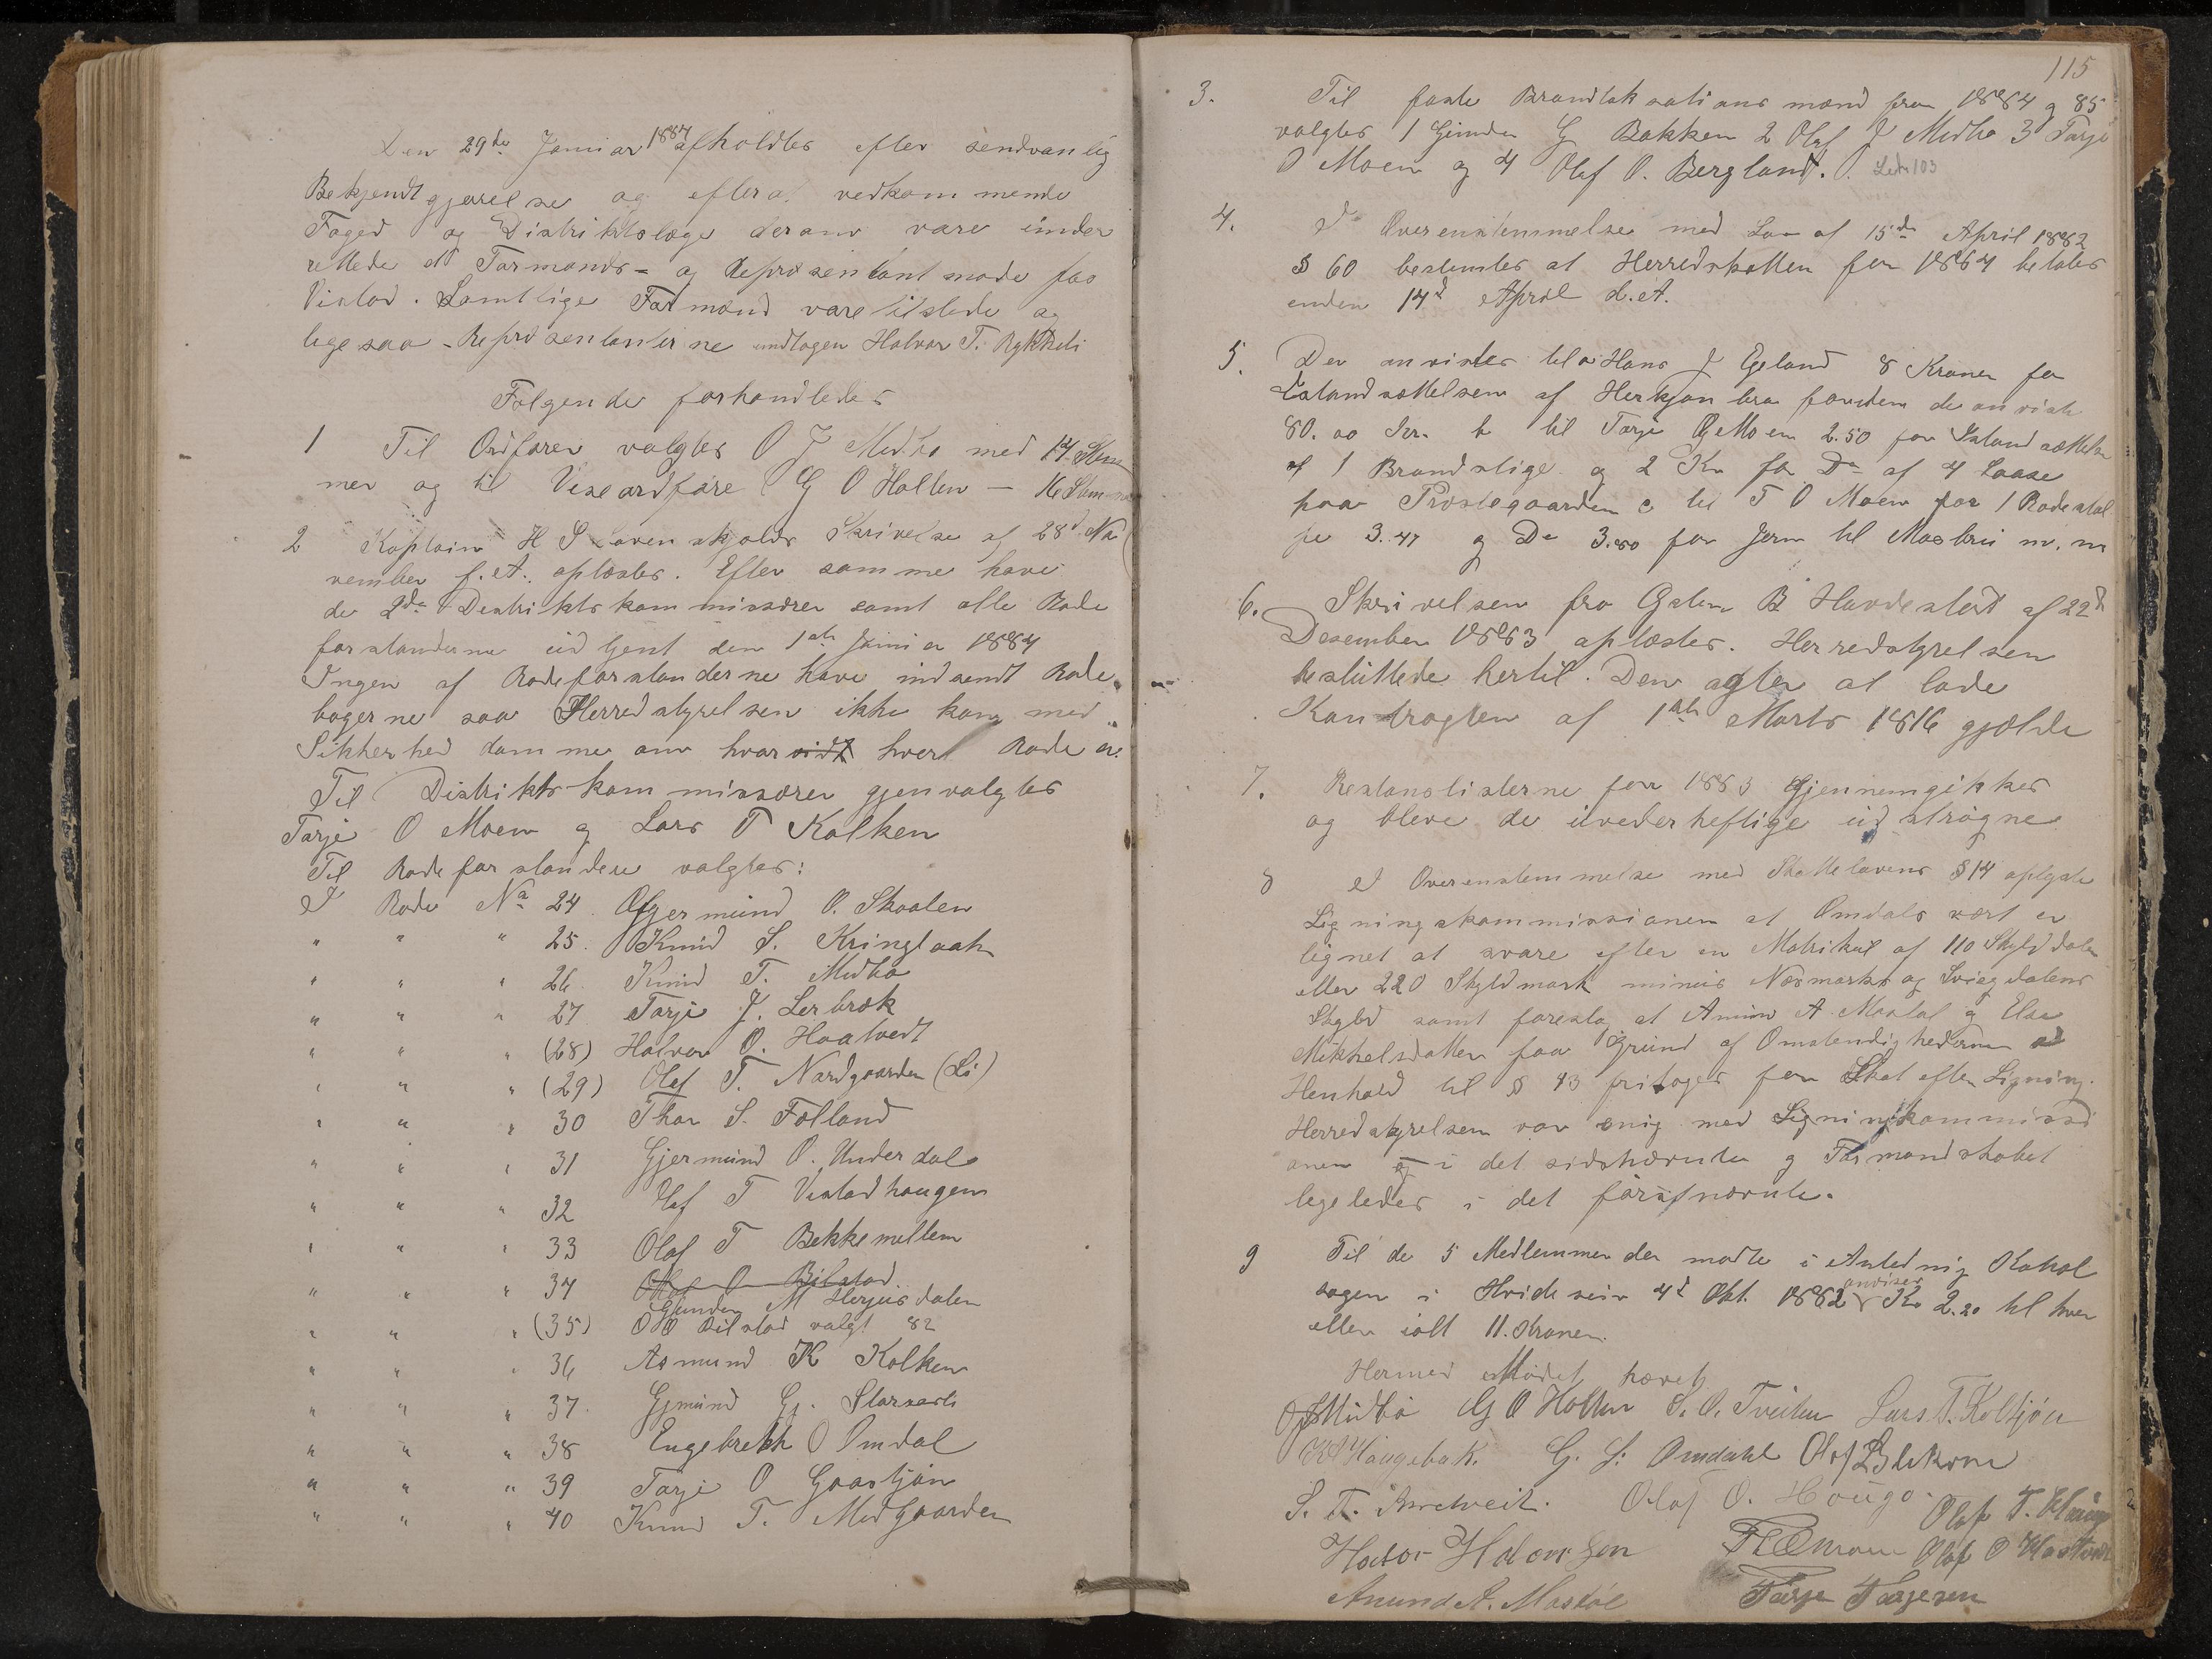 Den 29de Januar 1884 afholdtes efter sendvanlig
Bekjendtgjørelse og efterat vedkommende
Foged og Distriktslæge derom vare under
rettede et Formands- og Repræsentantmøde for
Vistad. Samtlige Formænd vare tilstede og
ligesaa Repræsentanterne undtagen Halvor T. Rykkeli
Følgende forhandledes
1 Til Ordfører valgtes O J Midbø med 14 Stem
mer og til Viseordfører G O Holten — 16 Stemmer
2 Kaptein H S Løvenskjolds Skrivelse af 28d No
vember f. A. oplæstes. Efter samme have
de 2de Distriktskommissærer samt alle Rode
forstanderne udtjent den 1ste Januar 1884
Ingen af Rodeforstanderne have indsendt Rode
bøgerne saa Herredstyrelsen ikke kan med
Sikkerhed dømme om hvor vidt hver Rode er.
Til Distriktskommissærer gjenvalgtes
Tarje O Moen og Lars T Kolken
Til Rodeforstandere valgtes:
I Rode No 24. Gjermund O. Skoalen
" " " 25. Knud S. Kringlaak
" " " 26. Knud T. Midbø
" " " 27 Tarje J. Lerbræk
" " " (28) Halvor O. Haatvedt
" " " (29) Olef T. Nordgaarden (Li)
" " " 30 Thor S. Folland
" " " 31 Gjermund O. Underdal
" " " 32 Olef T Vistadhaugen
" " " 33 Olaf T Bekkemellem
" " " 34 Olaf O Bilstad
Gunder M Herjusdalen
" " " (35) O O Bilstad valgt 82
" " " 36 Asmund K Kolken
" " " 37. Gjmund Gj. Storsarli
" " " 38 Engebrekt O Omdal
" " " 39 Tarje O Gaastjøn
" " " 40 Knud T. Midgaarden
115
3. Til faste Brandtaksationsmænd for 1884 og 85
valgtes 1 Gunder G Bakken 2 Olaf J Midbø 3 Tarje
O Moen og 4 Olaf O. Bergland.
4. I Overenstemmelse med Lov af 15de April 1882
§ 60 bestemtes at Herredskatten for 1884 betales
inden 14d April d. A.
5. Der anvistes til a Hans J Egeland 8 Kroner for
Istandsættelsen af Herkjønbro foruden de anviste
80.00 Kr. b til Tarje O Moen 2.50 for Istandsættelse
af 1 Brandstige og 2 Kr for Do af 4 Laase
paa Præstegaarden c til T O Moen for 1 Rodestol
pe 3.47 og Do 3.80 for Jern til Mosbru m. m
6. Skrivelsen fra B Havdestad af 22d
Desember 1883 oplæstes. Herredstyrelsen
besluttede hertil. Den agter at lade
Kontragten af 1ste Marts 1816 gjælde
7. Restanslisterne for 1883 Gjennemgikkes
og bleve de uvederheftige udstrøgne
8 I Overenstemmelse med Skattelovens § 14 oplyste
Ligningskommissionen at Omdals vært er
lignet at svare efter en Matrikul af 110 Skylddaler
eller 220 Skyldmark minus Næsmarks og Sviegdalens
Skyld samt foreslog at Anund A. Mostøl og Else
Mikkelsdatter paa Grund af Omstendighederne
Henhold til § 43 fritages for Skat efter Ligning.
Herredstyrelsen var enig med Ligningskommissi
onen i det sidstnævnte og Formandskabet
ligeledes i det førstnævnte.
9 Til de 5 Medlemmer der mødte i Anledning Kokol
sagen i Hvideseie 4d Okt. 1882 anvises Kr 2.20 til hver
eller ialt 11 Kroner.
Hermed Mødet hævet
O J Midbø G O Holten S. O. Tveiten Lars T. Koltjøn
Haugebak. G. S. Omdahl Olaf Blekom
S. T. Amtveit. Olaf O. Haugo Olaf T.
Halvor Halvorsen T O Moen Olaf O Haatvedt
Anund A. Mostøl Tarje Tarjesen